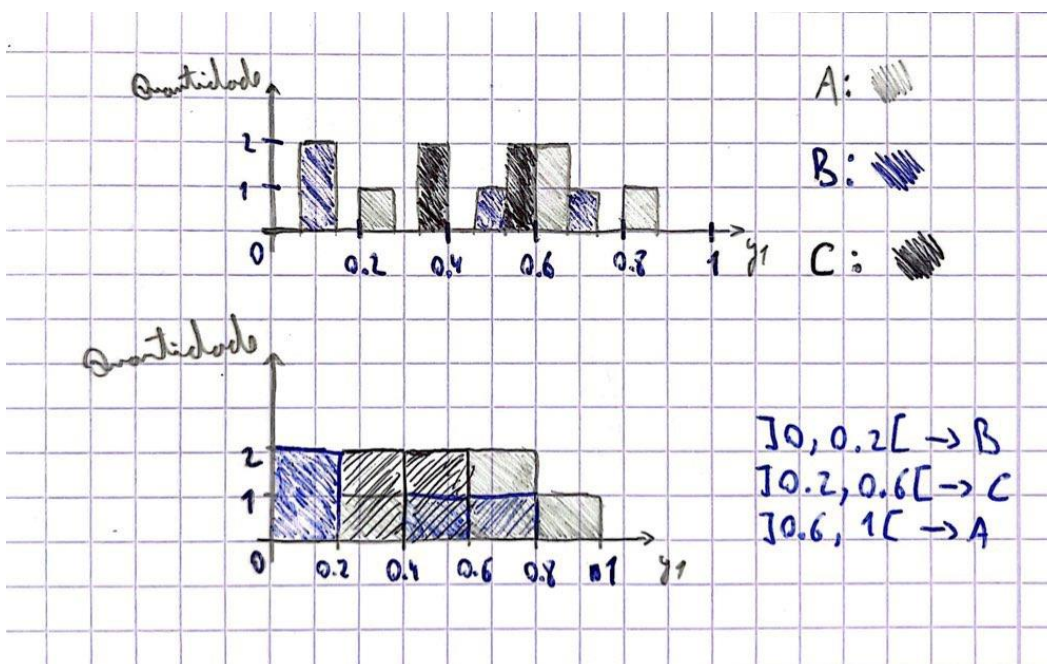 Quantidade
2
1
0
0.2 0.4 0.6 0.8 1 y1
A:
B:
C:
Quantidade
2
1
0
0.2 0.4 0.6 0.8 1 y1
]0, 0.2[ → B
]0.2, 0.6[ → C
]0.6, 1[ → A